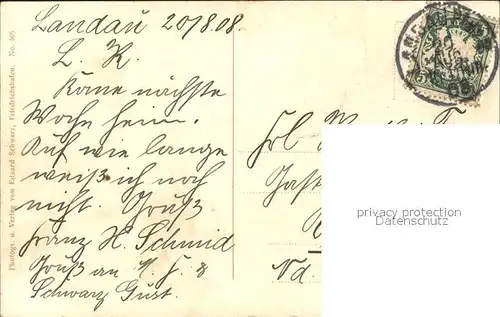 Landau 20/8.08.
L. K.
Kome nächste
Woche heim.
Auf wie lange
weiß ich noch
nicht. Gruß
Franz X. Schmid
Gruß an
Schwarz Gust.
Photogr. u. Verlag von Eduard Schwarz, Friedrichshafen. No.
Frl
Gast
Nd.
privacy protection
Datenschutz